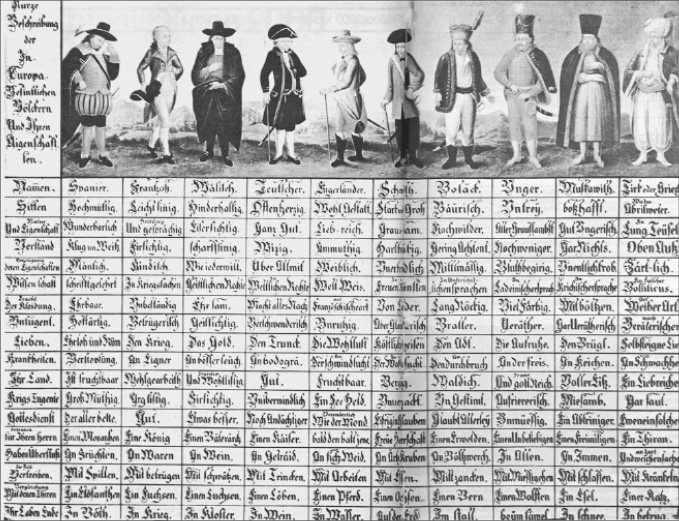 Kurze
Beschreibung
der
In
Europa
Befintlichen
Völckern
Und Ihren
Aigenschaff
ten.
Namen. Spanier. Frantzoß. Wälisch. Teutscher. Engerländer. Schwth. Boläck. Unger. Muskawith. Tirk oder Griech
Sitten Hochmüttig. Leichtsinig. Hinderhaltig. Offenherzig. Wohl Gestalt. Starck und Groß Bäurisch. Untrey. boßhafft. Abrilweter.
Und Eigenschaft Wunderbarlich Und gesprächig Eifersichtig. Ganz Gut. Lieb-reich. Grausam. Hochwilder. Aller Grausambst Gut Ungerisch. Lung Teüfel.
Verstand Klug un Weiß Firsichtig. scharffsinig. Wizig. Ammuthig. Hartknäkig. Gering Achtent. Nochweniger. Gar Nichts. Oben Auß
Mänlich. Kindisch. Wie iederwill. Über Allmit Weiblich. Unerkendlich Mittlmäsig. Bluthbegirig. Unentlich krob. Zärt-lich.
Wissenschaft schrifftgelehrt In Kriegssachen Geistlichen Rechte Weltlichen Rechte Welt Weis. Freuen Kunsten
Der Klaidung. Ehrbaar. Unbeständig Ehrsam. Macht alles Nach Französischer arth Von Löder. Lang Röckig. Viel Färbig. Mit böltzen. Weiber Art
Untugent. Hoffärtig. Betrügerisch Geillsichtig. Verschwenderisch Unruhig. Aber glauberisch Braller. Veräther. Gar Verätherisch
Lieben. Ehrlob und Rüm Den Krieg. Das Gold. Den Trunck. Die Wohllust Köstliche speisen Den Adl. Die Aufruhe. Den Brügl. Selbsteigne Lieb
Kranckheiten. Verstopfung. An Eigner An böser seüch. An bodogrä. Der schwindsucht Der Wassersucht Den Durchbruch An der freis. An Keichen. An Schwachheit
Ihr Land. Ist fruchtbaar Wohlgearbeith Und Wohllistig Gut. Fruchtbaar. Bergig. Waldich. Und goltReich. Voller Eiß. Ein Liebreiches
Krigs Tugente Groß Muthig Arg listig. Firsichtig. Unüberwindlich Ein See Held. Unverzackt Un Gestimt. Aufrierisch. Miesamb. Gar faul.
Gottesdienst Der aller beste. Gut. Etwas besser. Noch Andächtiger Wie der Mond Eifrig in Glauben Glaubt Allerley Unmüessig. Ein Abtriniger.
für Ihren Herrn Einen Monarchen Eine König Einen Bäterärch Einen Kaiser. bald den bald jene Freie Herrschaft Einen Erwelden. Einen Unbeliebigen Einen Freimilligen Ein Thiran.
Haben Überfluß An Früchten. An Waren An Wein. An Getraid. An fich Weid. An Ärtz Kruben An Böltzwerch. In Allen. An Immen.
Vertreiben. Mit Spillen. Mit betrügen Mit schwätzen. Mit Trincken. Mit Arbeiten Mit Essen. Mit zancken. Mit Müessigehen Mit schlaffen. Mit Kränkeln
Mit denen Thiren Ein Elöfanthen Ein Fuchsen. Einen Luchsen. Einen Löben. Einen Pferd. Einen Ochsen. Einen Bern Einen Wolffen Ein Esel. Einer Katz.
Ihr Leben Ende In Böth. In Krieg. In Kloster. In Wein. In Wasser. Auf der Erd. Im stall. beÿm säwel. In schnee. In betrug.